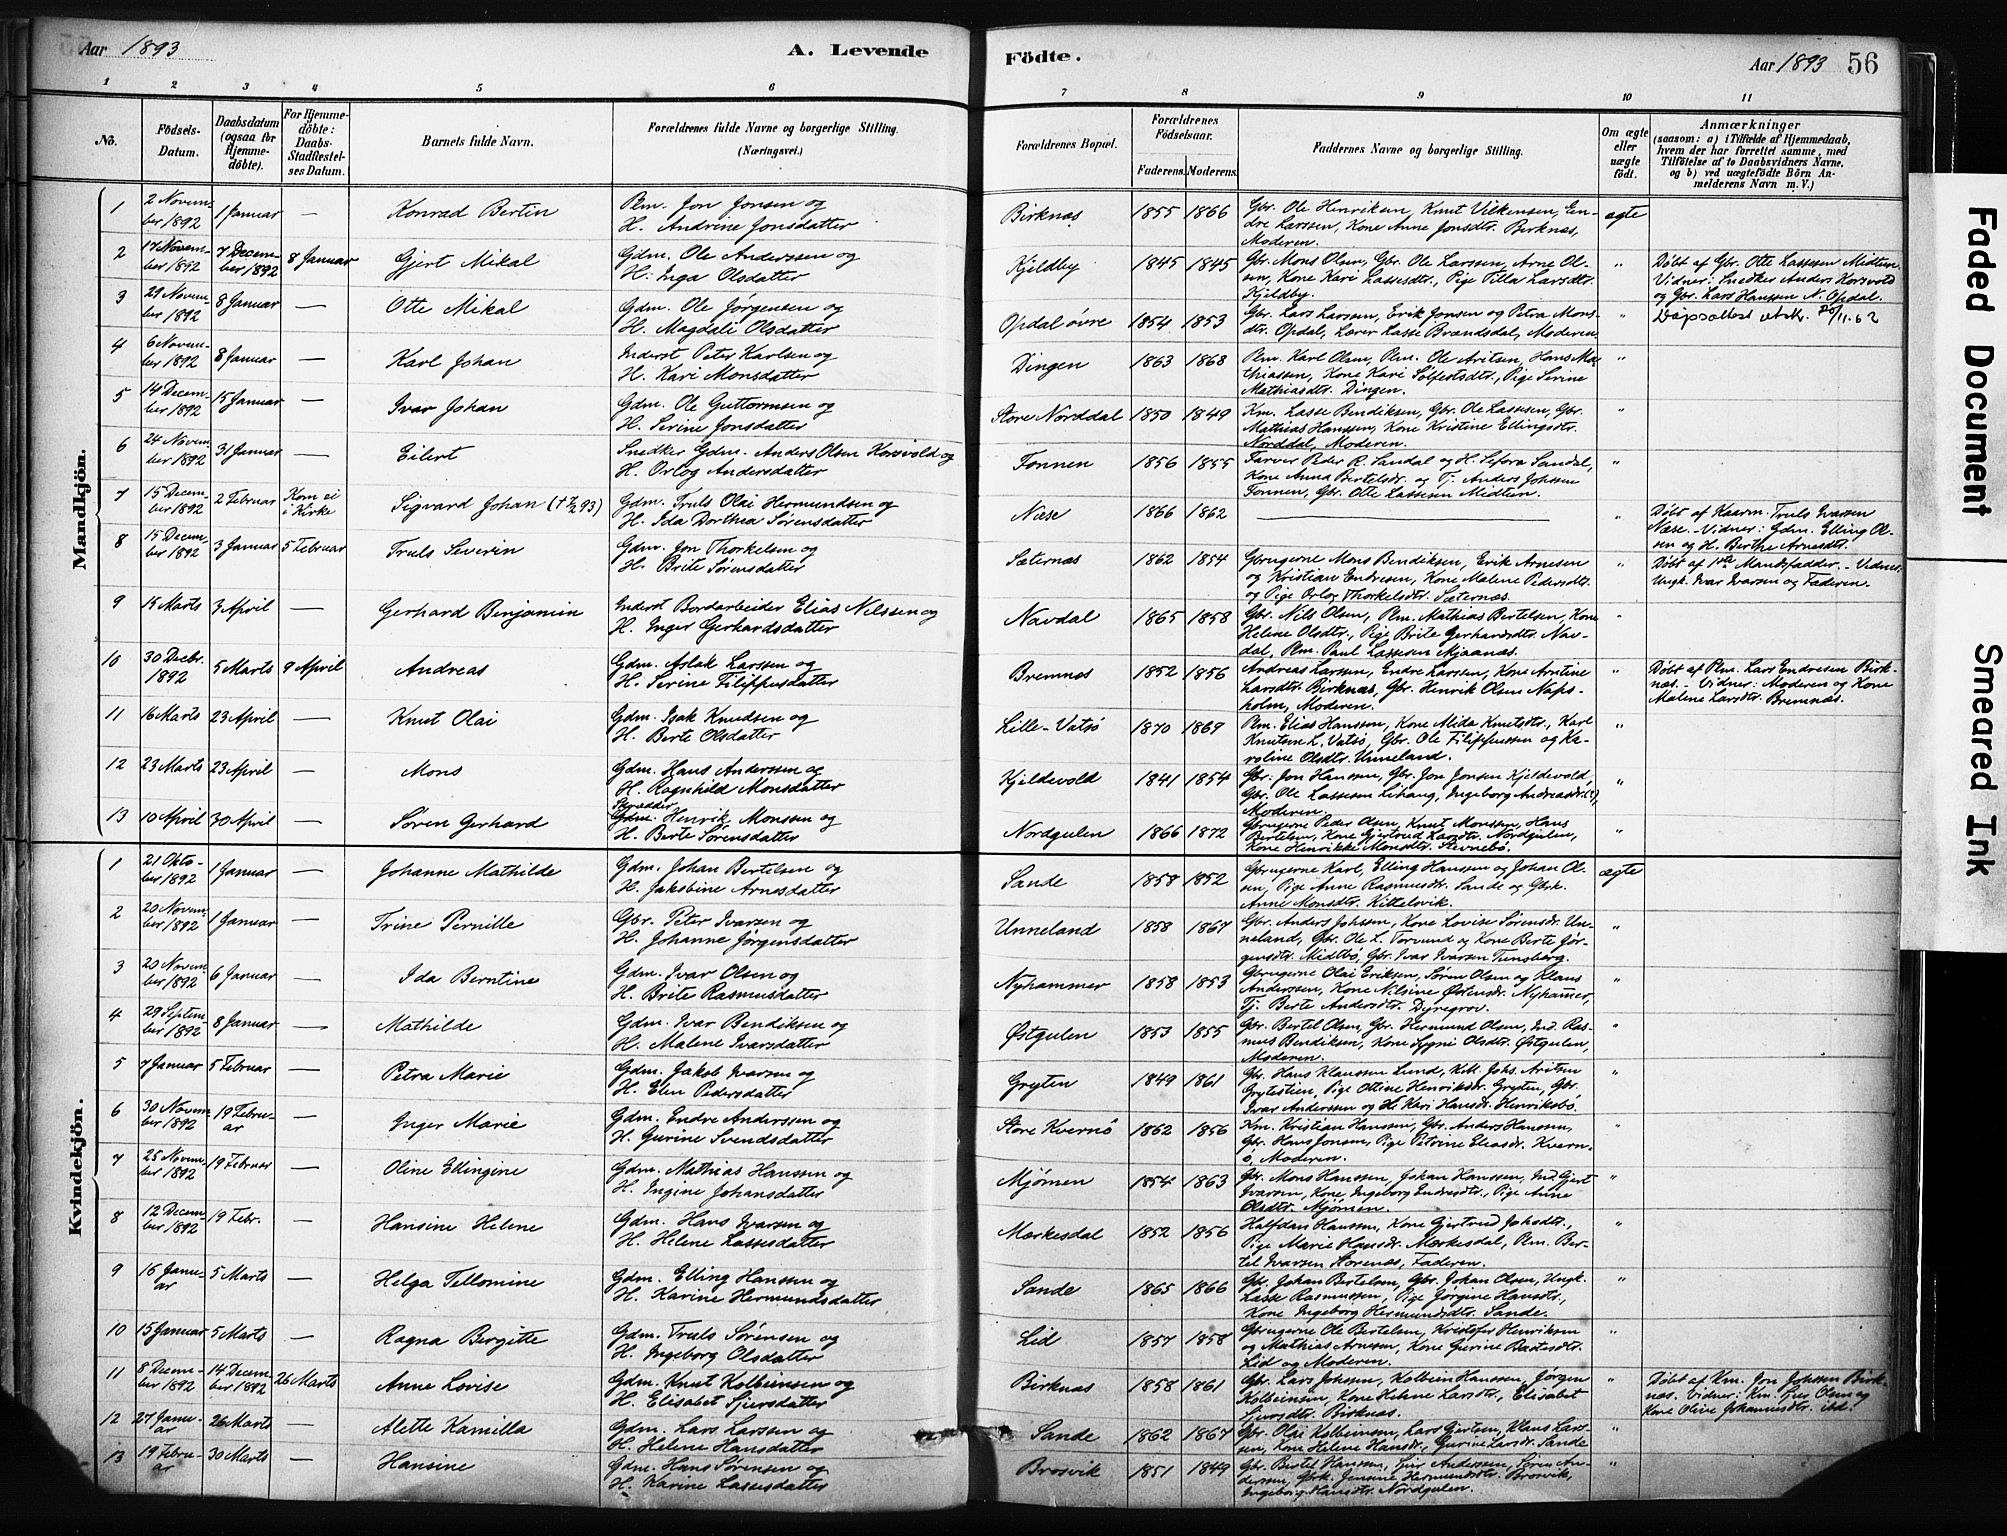 Aar 1893
A. Levende
Födte.
Aar 1893
56
1 2 3 4 5 6 7 8 9 10 11
No.
Födsels-Datum.
Daabsdatum (ogsaa for Hjemmedöbte).
For Hjemmedöbte: Daabs-Stadfestelses Datum.
Barnets fulde Navn.
Forældrenes fulde Navne og borgerlige Stilling.
(Næringsvei.)
Forældrenes Bopæl.
Forældrenes Födselsaar.
Faderens. Moderens.
Faddernes Navne og borgerlige Stilling.
Om ægte eller uægte födt.
Anmærkninger
(saasom: a) i Tilfælde af Hjemmedaab, hvem der har forrettet samme, med Tilföielse af to Daabsvidners Navne, og b) ved uægtefödte Börn Anmelderens Navn m. V.)
Mandkjön.
1 2 November 1892 1 Januar — Konrad Bertin Plm. Jon Jonsen og H. Andrine Jonsdatter Birknæs 1855 1866 Gbr. Ole Henriksen, Knut Vilkensen, Endre Larssen, Kone Anne Jonsdtr. Birknæs, Moderen. ægte
2 17 November 1892 7 December 1892 8 Januar Gjert Mikal Gdm. Ole Anderssen og H. Inga Olsdatter Kjeldby 1845 1845 Gbr. Mons Olsen, Gbr. Ole Larssen, Arne Olsen, Kone Kari Lassesdtr., Pige Tilla Larsdtr. Kjeldby. " Døbt af Gbr. Otte Lassesen Midtun. Vidner: Snedker Anders Korsvold og Gbr. Lars Hanssen N. Opdal.
3 29 November 1892 8 Januar — Otte Mikal Gdm. Ole Jørgensen og H. Magdali Olsdatter Opdal øvre 1854 1853 Gbr. Lars Larssen, Erik Jonsen og Petra Monsdtr. Opdal, Lærer Lasse Brændsdal, Moderen. " Dåpsattest utsk. 20/11.62
4 6 November 1892 8 Januar — Karl Johan Inderst Peter Karlsen og H. Kari Monsdatter Dingen 1863 1868 Plm. Karl Olsen, Plm. Ole Aritsen, Hans Mathiassen, Kone Kari Sølfestsdtr., Pige Serine Mathiasdtr. Dingen. "
5 14 December 1892 15 Januar — Ivar Johan Gdm. Ole Guttormsen og H. Serine Jonsdatter Store Norddal 1850 1849 Km. Lasse Bendiksen, Gbr. Ole Lassesen, Gbr. Mathias Hanssen, Kone Kristine Ellingsdtr. Norddal, Moderen. "
6 24 November 1892 31 Januar — Eilert Snedker Gdm. Anders Olsen Korsvold og H. Orlog Andersdatter Fonnen 1856 1855 Farver Peder R. Sandal og H. Sefora Sandal, Kone Anna Bertelsdr og Tj. Anders Johssen Fonnen, Gbr. Otte Lassesen Midtun. "
7 15 December 1892 2 Februar Kom ei i Kirke Sigvard Johan (†7/2 93) Gdm. Truls Olai Hermundsen og H. Ida Dorthea Sørensdatter Næse 1866 1862 — " Døbt af Kaarm. Truls Ivarsen Næse. Vidner: Gdm. Elling Olsen og H. Berthe Arnesdtr.
8 15 December 1892 3 Januar 5 Februar Truls Severin Gdm. Jon Thorkelsen og H. Brite Sørensdatter Sæternæs 1862 1854 Gbrugerne Mons Bendiksen, Erik Arnesen og Kristian Endresen, Kone Malene Pedersdtr. og Pige Orlog Thorkelsdtr. Sæternæs. " Døbt af 1ste Mandsfadder. Vidner: Ungk. Ivar Ivarsen og Faderen.
9 15 Marts 3 April — Gerhard Benjamin Inderst Bordarbeider Elias Nilssen og H. Inger Gerhardsdatter Navdal 1865 1858 Gbr. Nils Olsen, Plm. Mathias Bertelsen, Kone Helene Olsdtr., Pige Brite Gerhardsdtr. Navdal, Plm. Paul Lassesen Mjaanæs. "
10 30 Decbr. 1892 5 Marts 9 April Andreas Gdm. Aslak Larssen og H. Serine Filippusdatter Bremnæs 1852 1856 Andreas Larssen, Endre Larssen, Kone Arntine Larsdtr. Birknæs, Gbr. Henrik Olsen Napsholm, Moderen. " Døbt af Plm. Lars Endresen Birknæs. Vidner: Moderen og Kone Malene Larsdtr. Bremnæs.
11 16 Marts 23 April — Knut Olai Gdm. Isak Knudsen og H. Berte Olsdatter Lille-Vatsø 1870 1869 Plm. Elias Hanssen, Kone Alida Knutsdtr., Karl Knutsen L. Vatsø, Gbr. Ole Filippussen og Karoline Olsdtr. Unneland. "
12 23 Marts 23 April — Mons Gdm. Hans Anderssen og H. Ragnhild Monsdatter Kjeldevold 1841 1854 Gbr. Jon Hanssen, Gbr. Jon Jonsen Kjeldevold, Gbr. Ole Lassesen Lihaug, Ingeborg Andreasdr. (?), Moderen. "
13 10 April 30 April — Søren Gerhard Skrædder Gdm. Henrik Monssen og H. Berte Sørensdatter Nordgulen 1866 1872 Gbrugerne Peder Olsen, Knut Monssen, Hans Bertelsen, Kone Gjertrud Larsdtr. Nordgulen, Kone Henrikke Monsdtr. Stevnebø. "
Kvindekjön.
1 21 Oktober 1892 1 Januar — Johanne Mathilde Gdm. Johan Bertelsen og H. Jakobine Arnesdatter Sande 1858 1852 Gbrugerne Karl, Elling Hanssen og Johan Olsen, Pige Anne Rasmusdtr. Sande og Gbrk. Anne Monsdtr. Kittelsvik. ægte
2 20 November 1892 1 Januar — Trine Pernille Gbr. Peter Ivarsen og H. Johanne Jørgensdatter Unneland 1858 1867 Gbr. Anders Johssen, Kone Lovise Sørensdr. Unneland, Gbr. Ole L. Torvund og Kone Berte Jørgensdtr. Midtbø, Gbr. Ivar Ivarsen Tunsberg. "
3 20 November 1892 6 Januar — Ida Berntine Gdm. Ivar Olsen og H. Brite Rasmusdatter Nyhammer 1858 1853 Gbrugerne Olai Eriksen, Søren Olsen og Klaus Anderssen, Kone Nilsine Østensdr. Nyhammer, Tj. Berte Andersdtr. Dyregrov. "
4 29 September 1892 8 Januar — Mathilde Gdm. Ivar Bendiksen og H. Malene Ivarsdatter Østgulen 1853 1855 Gbr. Bertel Olsen, Gbr. Hermund Olsen, Ind. Rasmus Bendiksen, Kone Sygni Olsdtr. Østgulen, Moderen. "
5 7 Januar 5 Februar — Petra Marie Gdm. Jakob Ivarsen og H. Elen Pedersdatter Gryten 1849 1861 Gbr. Hans Klaussen Lund, Joh. Aritsen Grytestien, Pige Ottine Henriksdr. Gryten, Gbr. Ivar Anderssen og H. Kari Hansdr. Henriksbø. "
6 30 November 1892 19 Februar — Inger Marie Gdm. Endre Anderssen og H. Gurine Svendsdatter Store Kvernø 1862 1856 Km. Kristian Hanssen, Gbr. Anders Hanssen, Gbr. Hans Jonsen, Pige Petrine Eliasdr. Kvernø, Moderen. "
7 25 November 1892 19 Februar — Oline Ellingine Gdm. Mathias Hanssen og H. Ingine Johansdatter Mjømen 1854 1863 Gbr. Mons Hanssen, Johan Hanssen, Ind. Gjert Ivarsen, Kone Ingeborg Endresdtr., Pige Anne Olsdtr. Mjømen. "
8 12 December 1892 19 Febr. — Hansine Helene Gdm. Hans Ivarsen og H. Helene Lassesdatter Mærkesdal 1852 1856 Halfdan Hanssen, Kone Gjertrud Johsdtr., Pige Marie Hansdr. Mærkesdal, Plm. Bertel Ivarsen Storenæs, Faderen. "
9 16 Januar 5 Marts — Helga Tellomine Gdm. Elling Hanssen og H. Karine Hermundsdatter Sande 1865 1866 Gbr. Johan Bertelsen, Gbr. Johan Olsen, Ungk. Lasse Rasmussen, Pige Jørgine Hansdtr., Kone Ingeborg Hermundsdtr. Sande. "
10 15 Januar 5 Marts — Ragna Birgitte Gdm. Truls Sørensen og H. Ingeborg Olsdatter Lid 1857 1858 Gbrugerne Ole Bertelsen, Kristofer Henriksen og Mathias Arnesen, Kone Gurine Lid og Moderen. "
11 8 December 1892 14 December 1892 26 Marts Anne Lovise Gdm. Knut Kolbeinsen og H. Elisabet Sjursdatter Birknæs 1858 1861 Gbr. Lars Johssen, Kolbein Hanssen, Jørgen Kolbeinsen, Kone Helene Larsdtr., Elisabet Sjursdtr. Birknæs. " Døbt af Km. Jon Johssen Birknæs. Vidner: Km. Sjur Olsen og Kone Olive Johannesdtr. ibd.
12 27 Januar 26 Marts — Alette Kamilla Gdm. Lars Larssen og H. Helene Hansdatter Sande 1862 1867 Gbr. Olai Kolbeinsen, Lars Gjertsen, Klaus Larssen, Kone Helene Hansdr., Gurine Larsdr. Sande "
13 19 Februar 30 Marts — Hansine Gdm. Hans Sørensen og H. Karine Lassesdatter Brosvik 1851 1849 Gbr. Bertel Hanssen, Sjur Anderssen, Søren Anderssen, Gbrk. Jensine Hermundsdtr. Brosvik, Ingeborg Hansdtr. Nordgulen. "
Faded Document
Smeared Ink